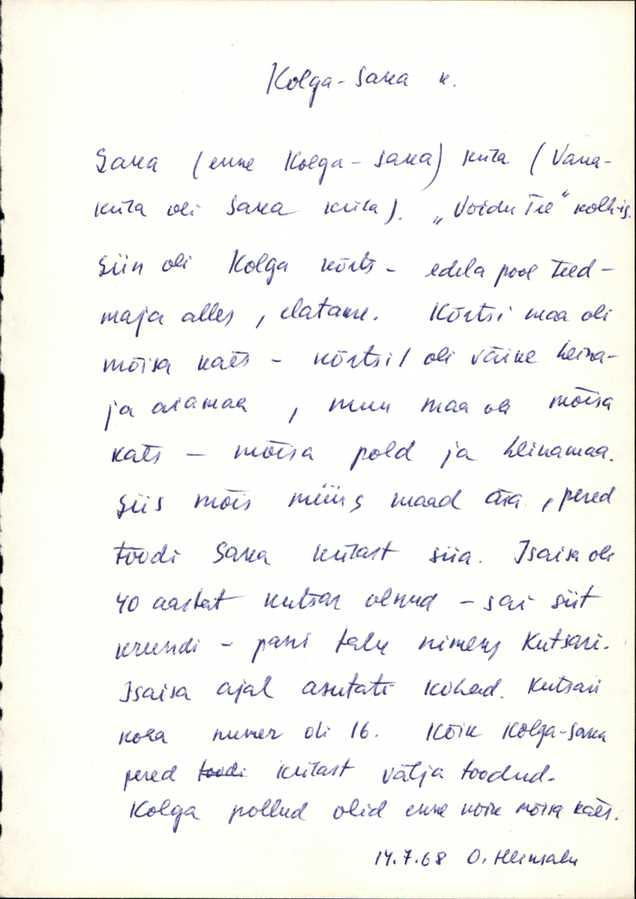 Kolga-Saka k.
Saka (enne Kolga-Saka) küla (Vana-
küla oli Saka küla). „Võidu Tee" kolhs.
Siin oli Kolga kõrts - edela pool teed -
maja alles, elatane. Kõrtsi maa oli
mõisa käes - kõrtsil oli väike heina-
ja aiamaa, muu maa oli mõisa
käes - mõisa põld ja heinamaa.
Siis mõis müüs maad ära, pered
toodi Saka külast siia. Isaisa oli
40 aastat kutsar olnud - sai siit
krundi - pani talu nimeks Kutsari.
Isaisa ajal asutati kohad. Kutsari
koha numer oli 16. Kõik Kolga-Saka
pered toodi külast välja toodud.
Kolga põllud olid enne kõik mõisa käes.
14.7.68 O. Heinsalu